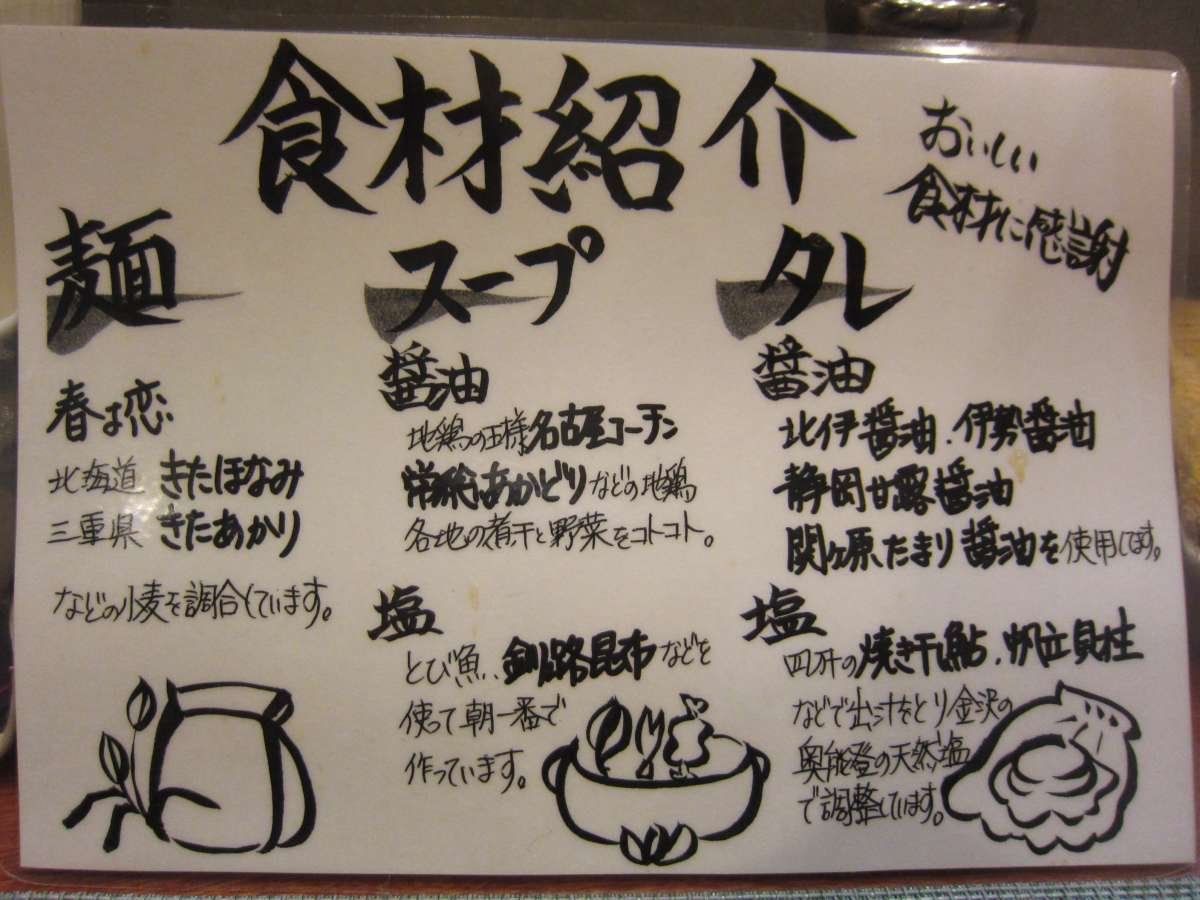 食材紹介
おいしい
食材に感謝
麺
春は恋
北海道 きたほなみ
三重県 きたあかり
などの小麦を調合しています。
スープ
醤油
地鶏の王様名古屋コーチン
あかどりなどの地鶏
各地の煮干と野菜をコトコト。
塩
とび魚、釧路昆布などを
使って朝一番で
作っています。
タレ
醤油
北伊醤油、伊勢醤油
静岡甘露醤油
関ヶ原たまり醤油を使用してます。
塩
四万十の焼き干し鮎、帆立貝柱
などで出汁をとり金沢の
奥能登の天然塩
で調整しています。